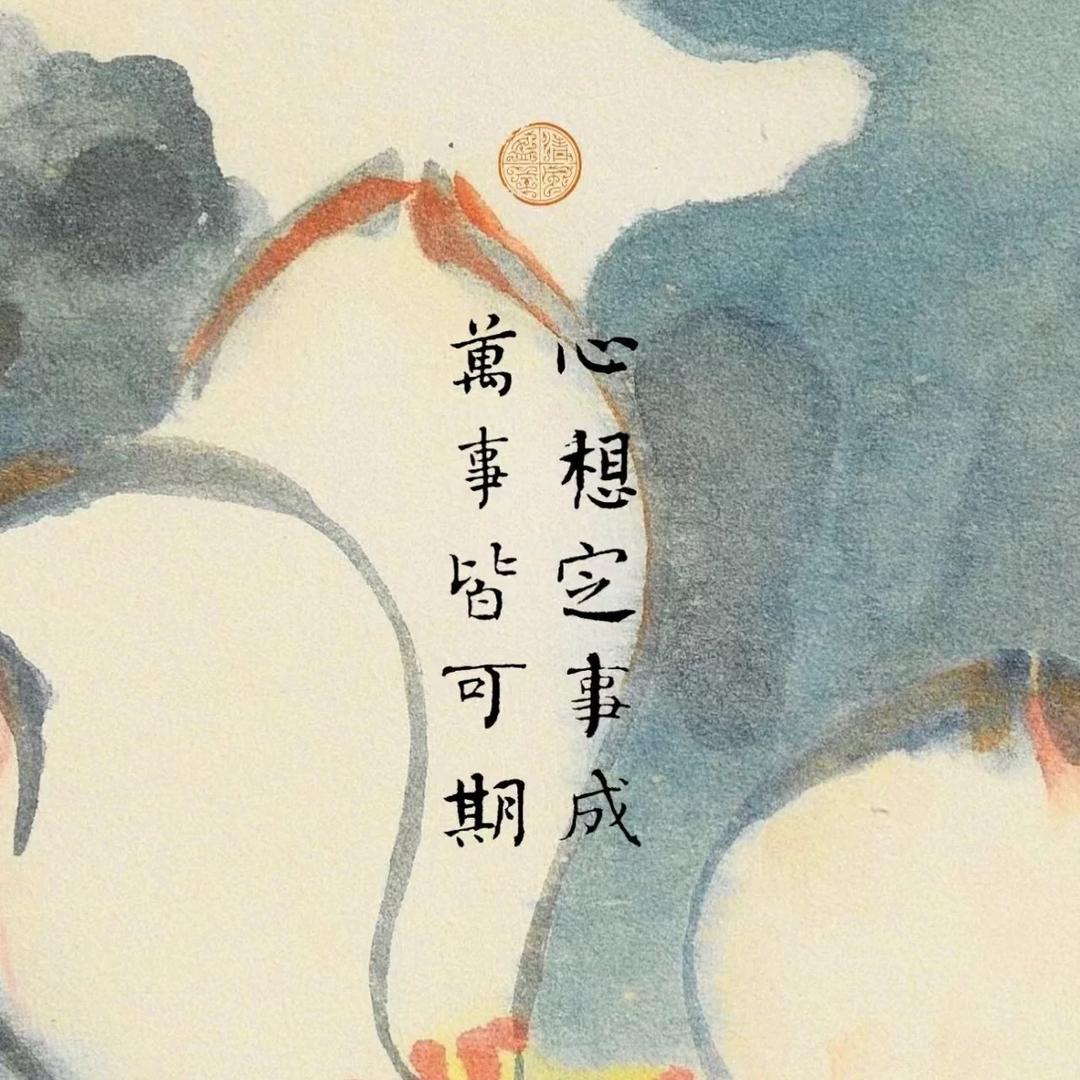 心想定事成
萬事皆可期